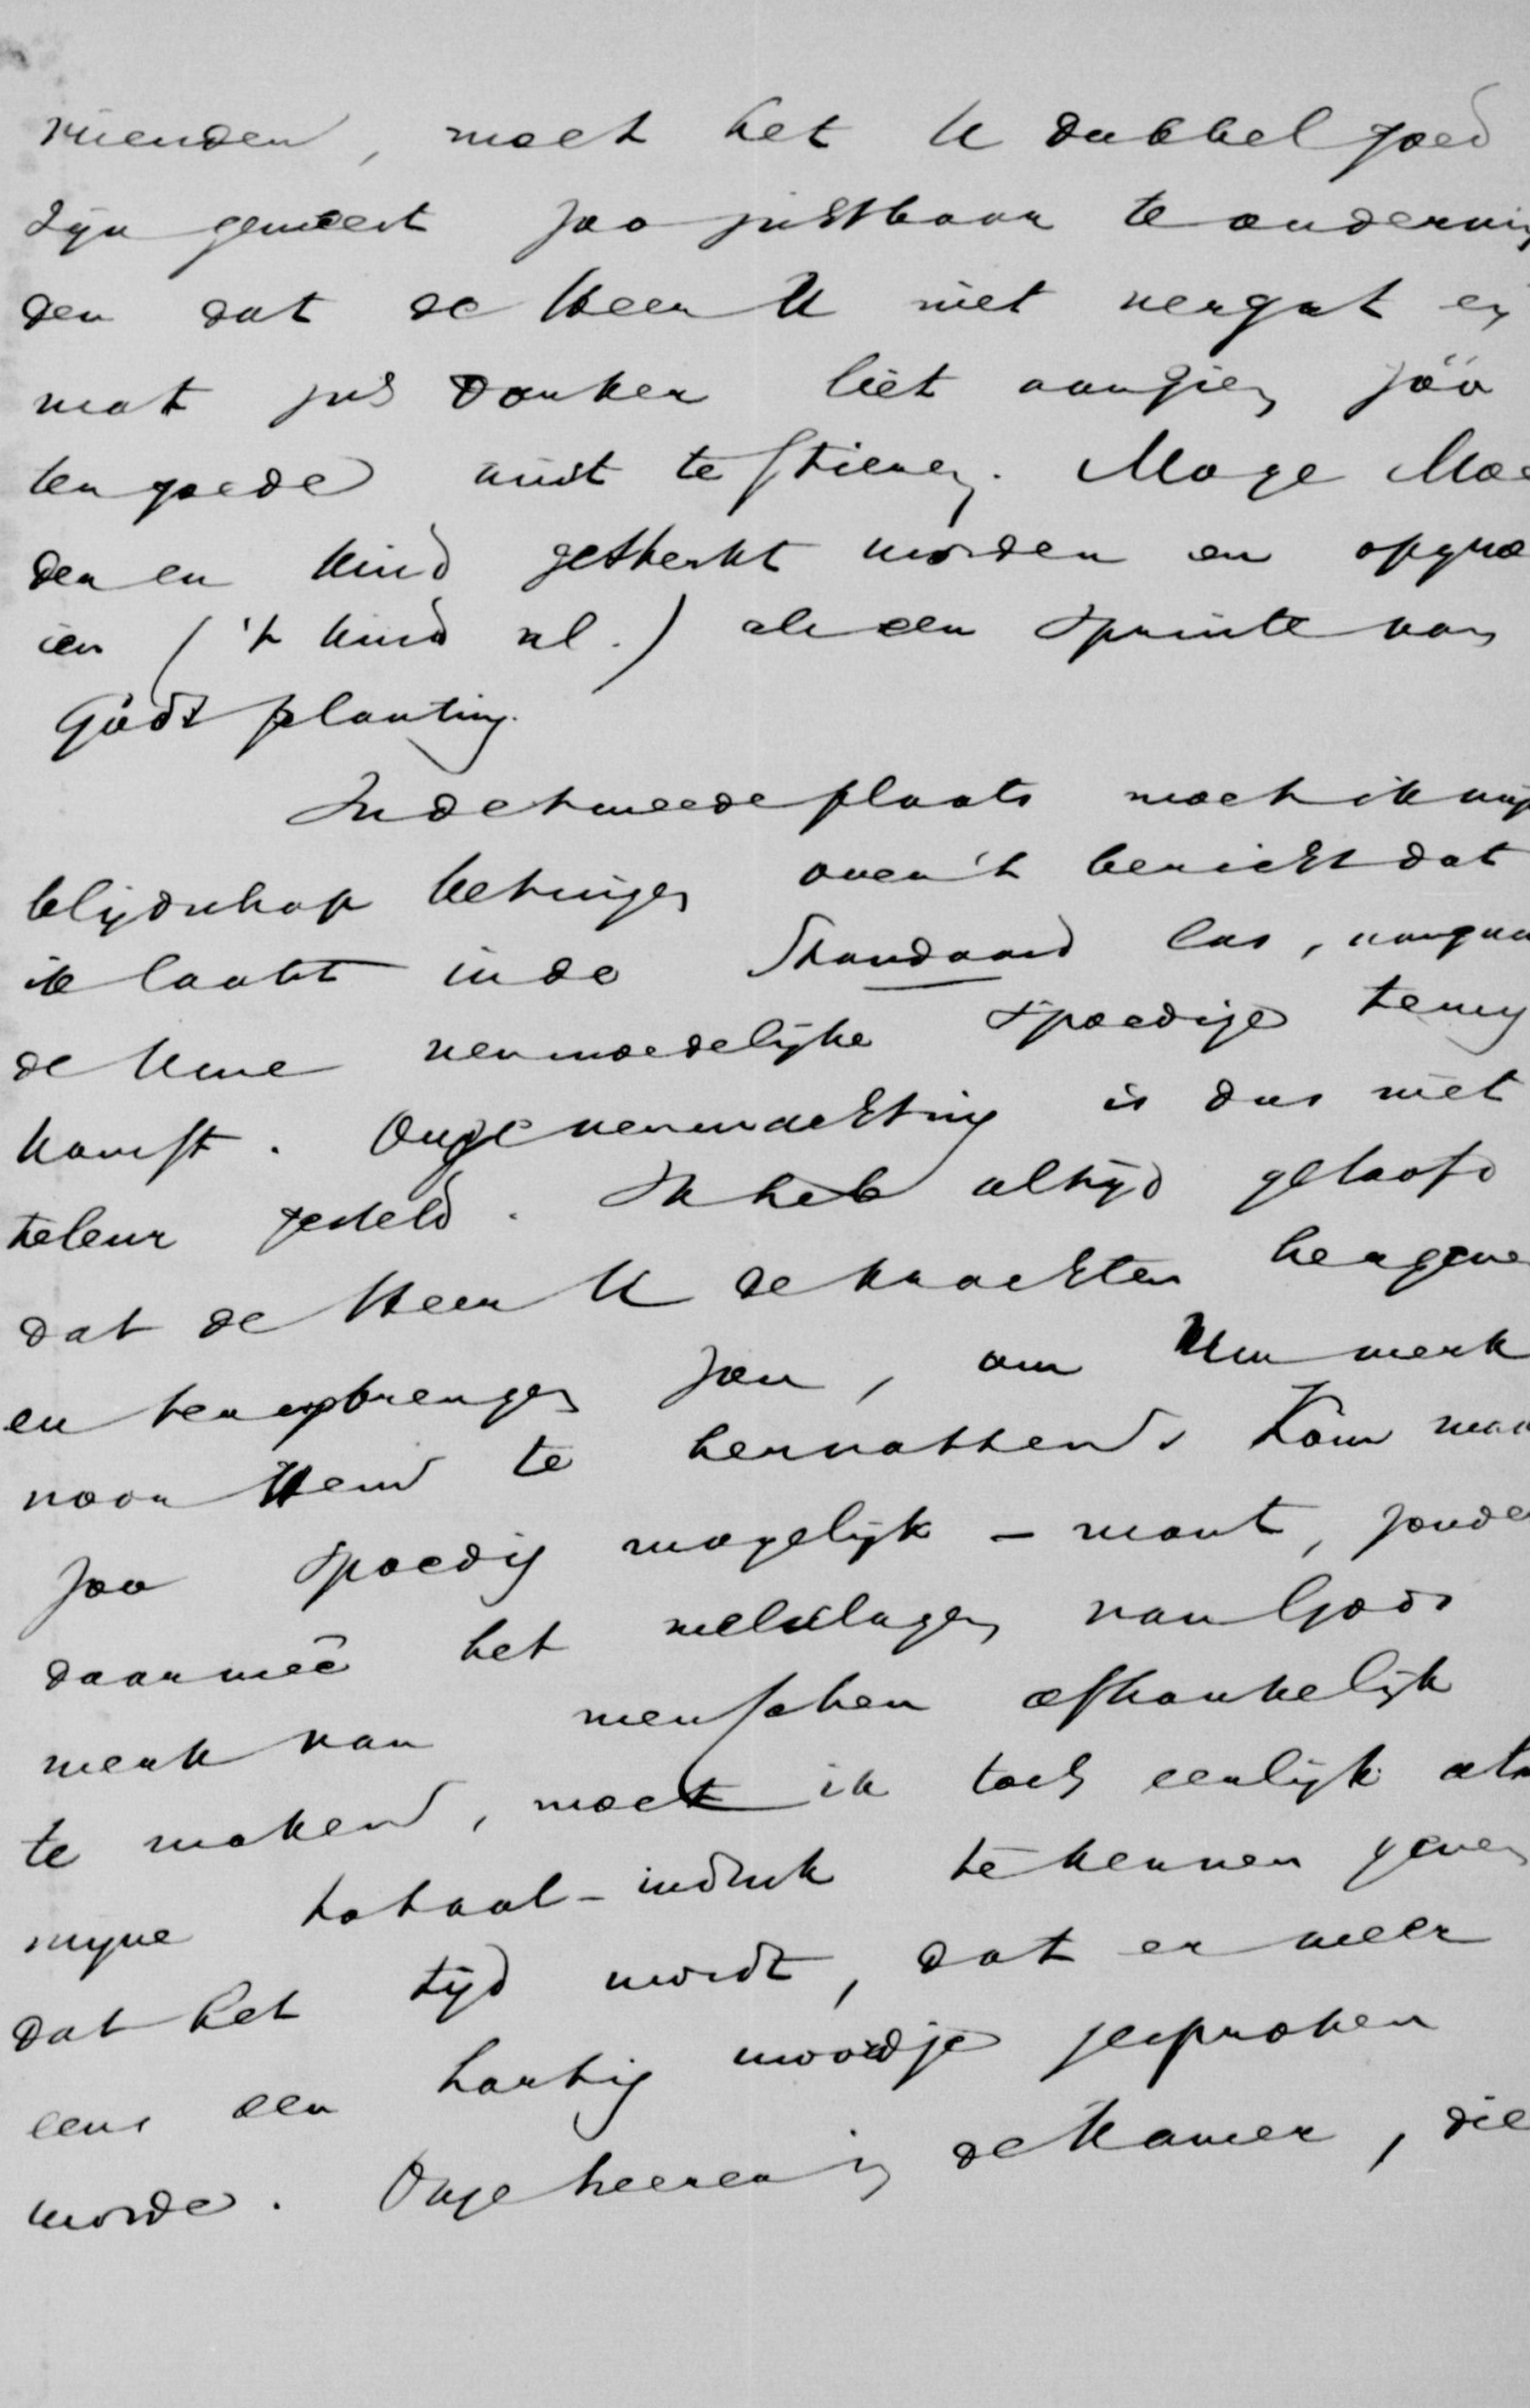 vrienden, moet het U dubbel goed
zijn geweest zoo zichtbaar te ondervin
den dat de Heer U niet vergat en
wat zich donker liet aanzien zóó
ten goede wist te stieren. Moge Moe
der en kind gesterkt worden en opgroe
ien ('t kind nl.) als een spruite van
Gods planting.
In de tweede plaats moet ik mijn
blijdschap betuigen over 't bericht dat
ik laatst in de Standaard las, aangaan
de Uwe vermoedelijke spoedige terug
komst. Onze verwachting is dus niet
teleur gesteld. Ik heb altijd geloofd
dat de Heer U de krachten hergeven
en terugbrengen zou, om Uw werk
voor Hem te hervatten. Kom maar
zoo spoedig mogelijk – want, zonder
daarmeê het welslagen van Gods
werk van menschen afhankelijk
te maken, moet ik toch eerlijk als
mijne totaal-indruk te kennen geven
dat het tijd wordt, dat er weer
eens een hartig woordje gesproken
worde. Onze heeren in de Kamer, die